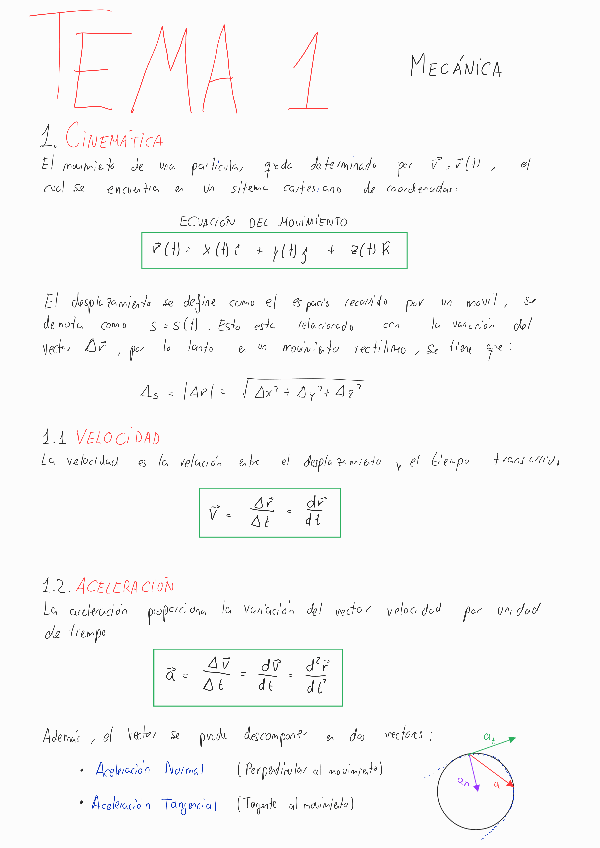 TEMA 1
MECÁNICA
1. CINEMÁTICA
El movimiento de una partícula, queda determinado por r⃗ = r⃗(t), el
cual se encuentra en un sistema cartesiano de coordenadas:
ECUACIÓN DEL MOVIMIENTO
r⃗(t) = x(t) î + y(t) ĵ + z(t) k̂
El desplazamiento se define como el espacio recorrido por un movil, se
denota como s = s(t). Esto esta relacionado con la variación del
vector Δr⃗, por lo tanto en un movimiento rectilineo, se tiene que:
Δs = |Δr⃗| = √(Δx² + Δy² + Δz²)
1.1 VELOCIDAD
La velocidad es la relación entre el desplazamiento y el tiempo transcurrido
v⃗ = Δr⃗/Δt = dr⃗/dt
1.2. ACELERACIÓN
La aceleración proporciona la variación del vector velocidad por unidad
de tiempo
a⃗ = Δv⃗/Δt = dv⃗/dt = d²r⃗/dt²
Además, el vector se puede descomponer en dos vectores:
• Aceleración Normal (Perpendicular al movimiento)
• Aceleración Tangencial (Tangente al movimiento)
a_t
a_n
a